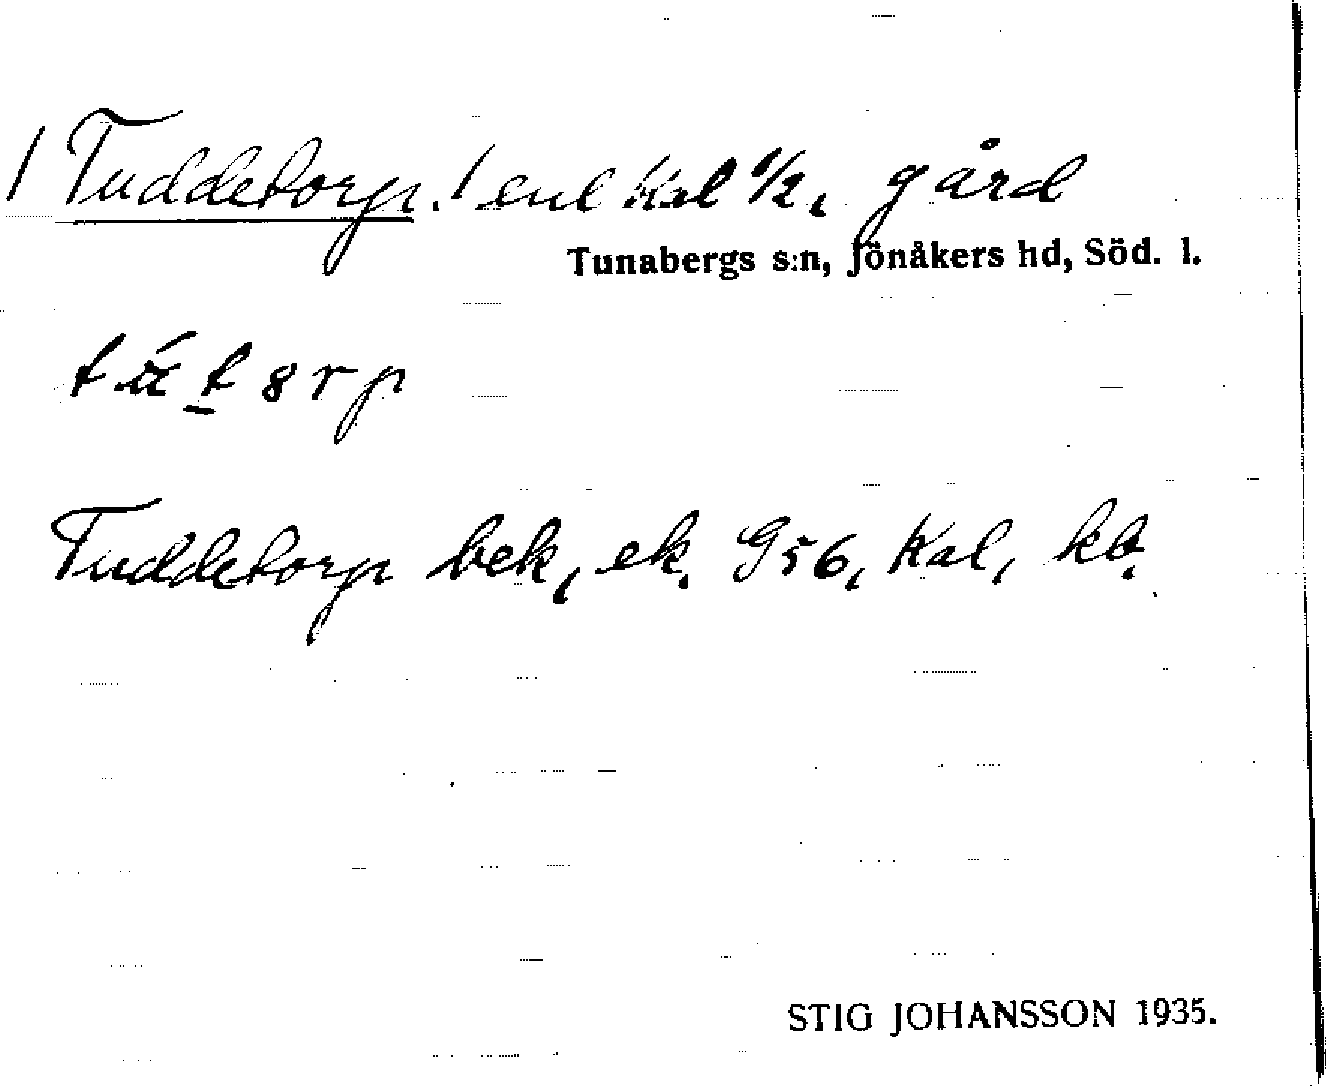 / Tuddetorp. / enl Kal 1/2, gård
Tunabergs s:n, Jönåkers hd, Söd. l.
Tuddetorp bek, ek. G56, Kal, kb.
STIG JOHANSSON 1935.